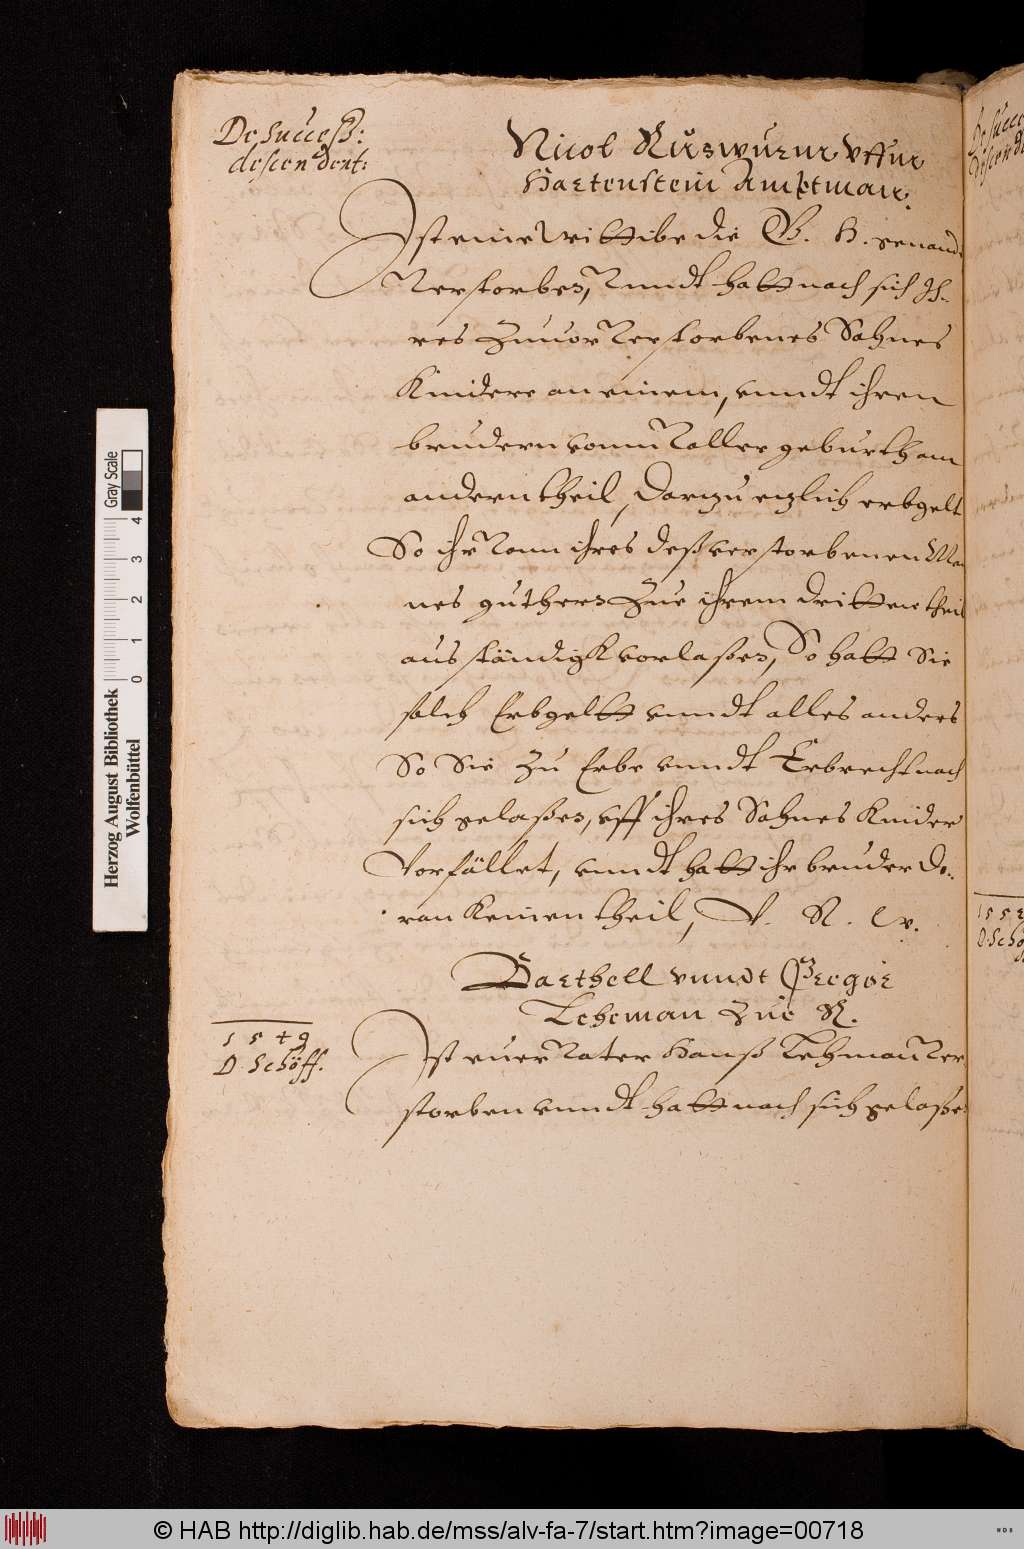 De Success:
descendent:
Nicol Ruswurm vffm
Hartenstein Amptman.
Ist eine Wittibe die Th. H. genand
verstorben, vnndt hatt nach sich Ih-
res zuuor verstorbenes Sohnes
Kindere an einem, vnndt ihren
brudern vonn voller geburth am
andern theil, Darzu etzlich erbgelt
So ihr vonn ihres deß verstorbenen Man
nes guthern zue ihrem dritten theil
ausständigk vorlaßen, So hatt Sie
solch Erbgeltt vnndt alles anders
So Sie zu Erbe vnndt Erbrecht nach
sich gelaßen, vff ihres Sohnes Kinder
vorfället, vnndt hatt ihr bruder do-
ran Keinen theil, V. R. W.
Barthell vnndt Gregor
Lehman zue R.
1549
D. Schöff.
Ist euer vater Hanß Lehman ver
storben vnndt hatt nach sich gelaßen
De Succ
descen
155
D. Schö
Herzog August Bibliothek
Wolfenbüttel
0 1 2 3 4
Gray Scale
© HAB http://diglib.hab.de/mss/alv-fa-7/start.htm?image=00718